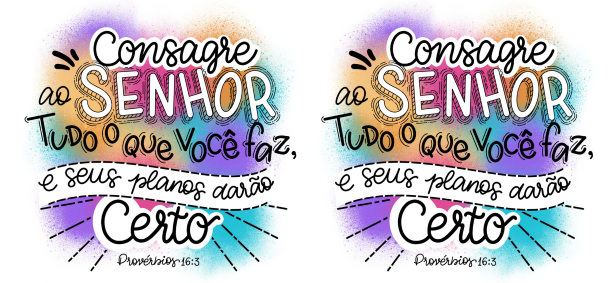 Consagre
ao SENHOR
Tudo o que você faz,
e seus planos darão
Certo
Provérbios 16:3
Consagre
ao SENHOR
Tudo o que você faz,
e seus planos darão
Certo
Provérbios 16:3